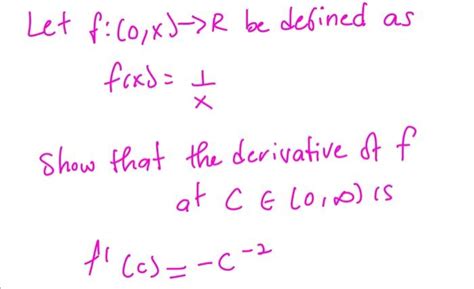 Let f:(0,x)->R be defined as
f(x) = 1/x
Show that the derivative of f
at C ∈ (0,∞) is
f'(c) = -c^-2